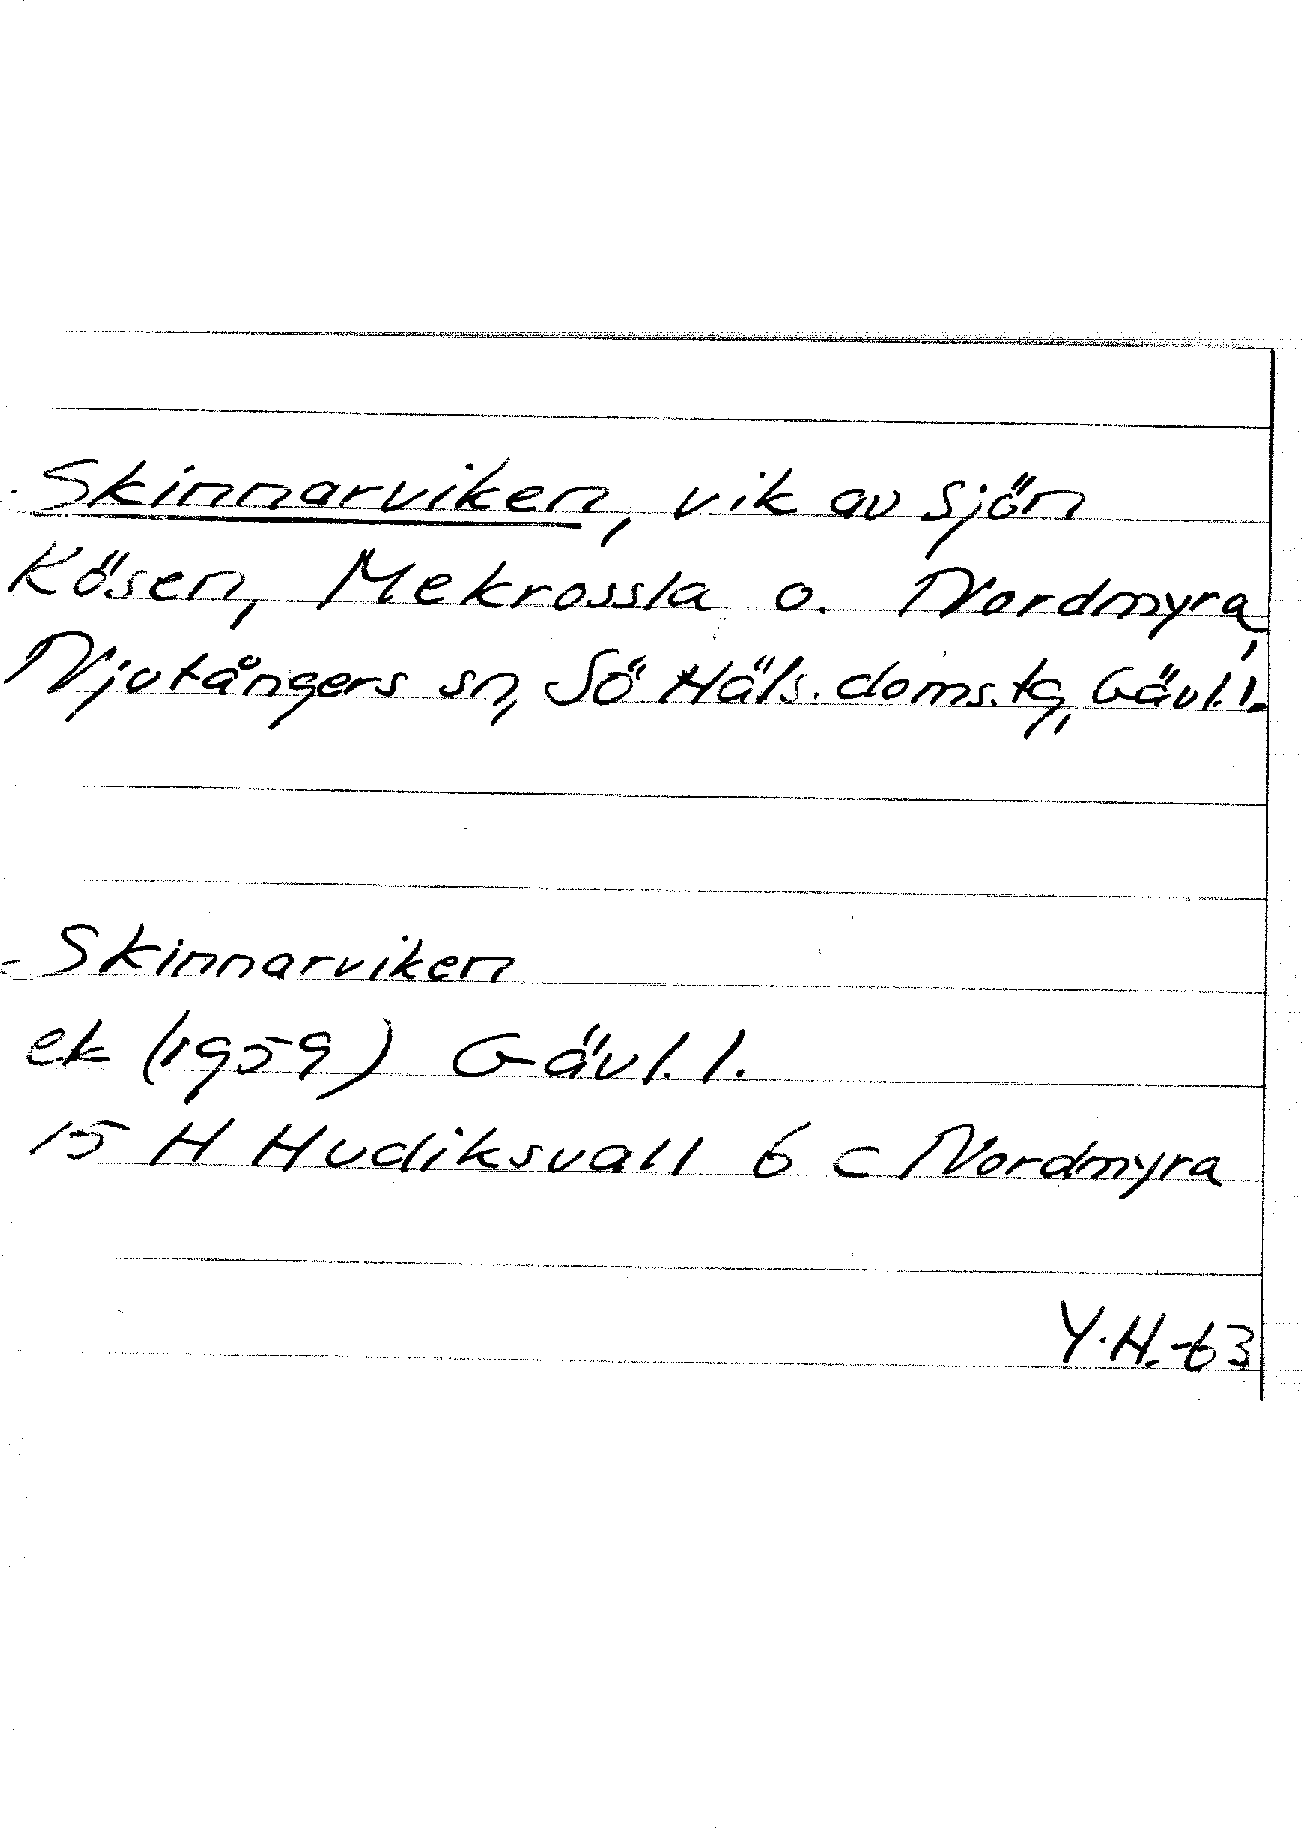 Skinnarviken, vik av sjön
Kösen, Mekrossla o. Nordmyra,
Njutångers sn, Sö Häls. doms.tg, Gävl.l.
Skinnarviken
ek (1959) Gävl.l.
15 H Hudiksvall 6 c Nordmyra
Y.H.-63